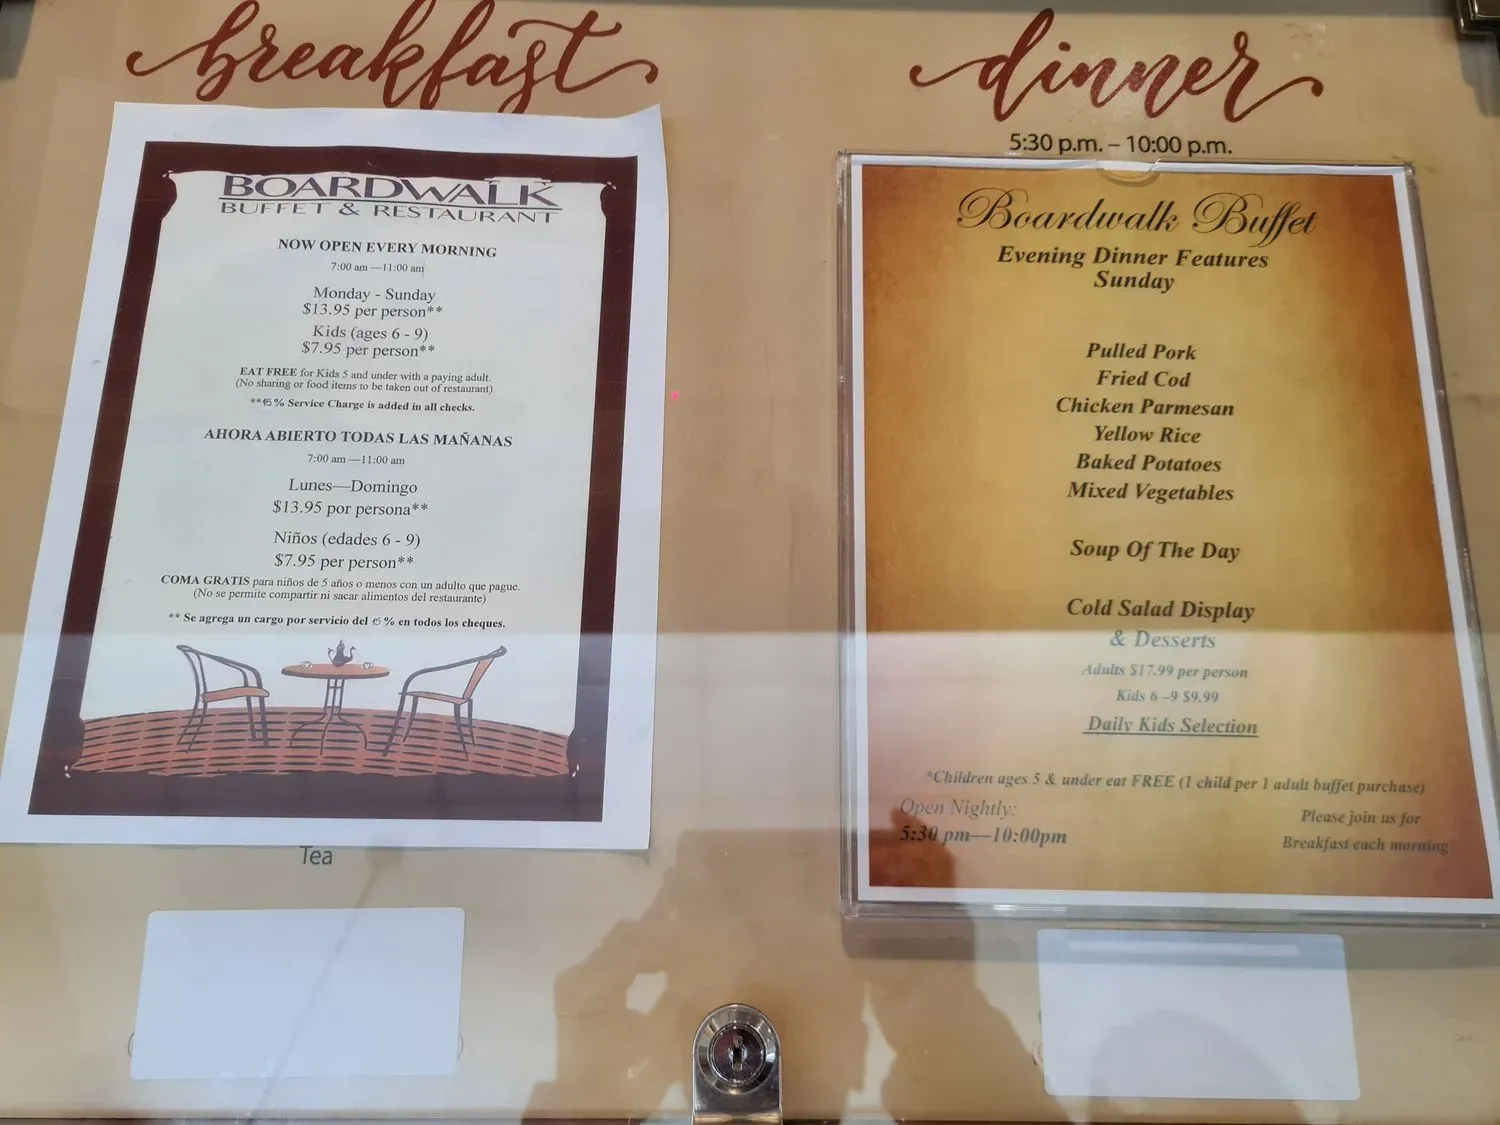 breakfast
BOARDWALK
BUFFET & RESTAURANT
NOW OPEN EVERY MORNING
7:00 am —11:00 am
Monday - Sunday
$13.95 per person**
Kids (ages 6 - 9)
$7.95 per person**
EAT FREE for Kids 5 and under with a paying adult.
(No sharing or food items to be taken out of restaurant)
**15% Service Charge is added in all checks.
AHORA ABIERTO TODAS LAS MAÑANAS
7:00 am —11:00 am
Lunes—Domingo
$13.95 por persona**
Niños (edades 6 - 9)
$7.95 per person**
COMA GRATIS para niños de 5 años o menos con un adulto que pague.
(No se permite compartir ni sacar alimentos del restaurante)
** Se agrega un cargo por servicio del 15% en todos los cheques.
Tea
dinner
5:30 p.m. – 10:00 p.m.
Boardwalk Buffet
Evening Dinner Features
Sunday
Pulled Pork
Fried Cod
Chicken Parmesan
Yellow Rice
Baked Potatoes
Mixed Vegetables
Soup Of The Day
Cold Salad Display
& Desserts
Adults $17.99 per person
Kids 6 –9 $9.99
Daily Kids Selection
*Children ages 5 & under eat FREE (1 child per 1 adult buffet purchase)
Open Nightly:
5:30 pm—10:00pm
Please join us for
Breakfast each morning!